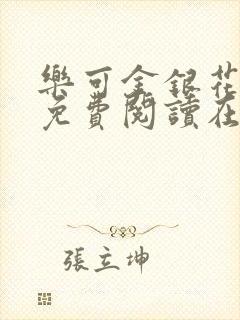 樂可金銀花
免費閱讀在
張立坤